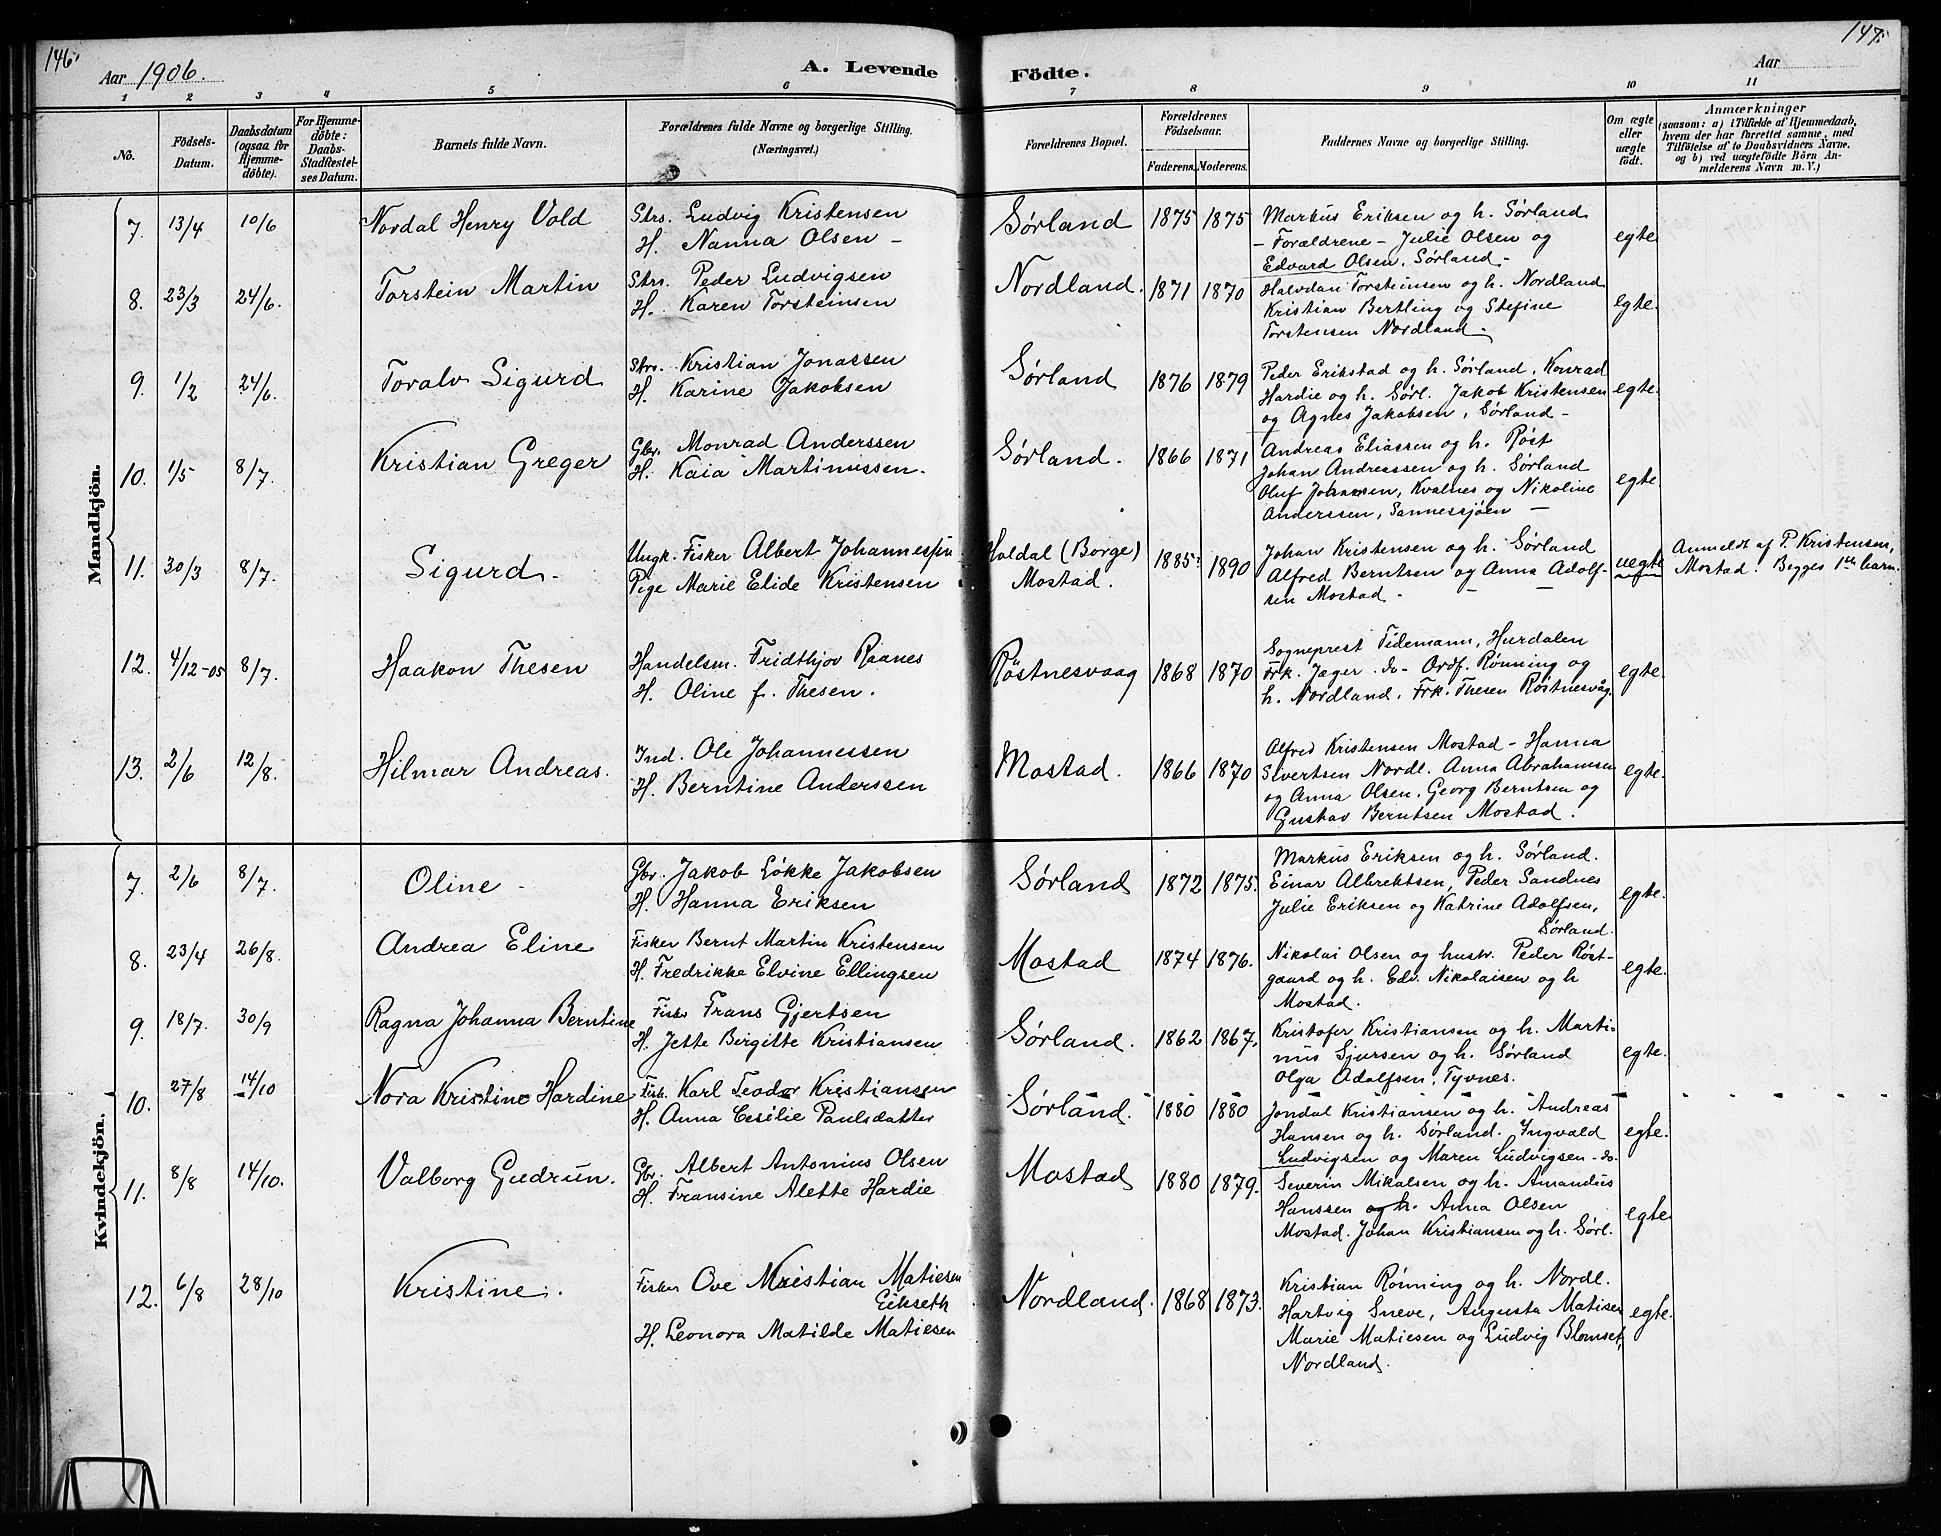 146.
147.
Aar 1906.
A. Levende
Fødte.
Aar
1 2 3 4 5 6 7 8 9 10 11
No.
Fødsels-Datum.
Daabsdatum (ogsaa for Hjemmedøbte).
For Hjemmedøbte: Daabs-Stadfæstelses Datum.
Barnets fulde Navn.
Forældrenes fulde Navne og borgerlige Stilling.
(Næringsvei.)
Forældrenes Bopæl.
Forældrenes Fødselsaar.
Faderens. Moderens.
Faddernes Navne og borgerlige Stilling.
Om ægte eller uægte født.
Anmærkninger
(saasom: a) i Tilfælde af Hjemmedaab,
hvem der har forrettet samme, med
Tilføielse af to Daabsvidners Navne,
og b) ved uægtefødte Børn An-
melderens Navn m. V.)
Mandkjön.
7. 13/4 10/6 Nordal Henry Vold
Strs. Ludvig Kristensen
H. Nanna Olsen -
Sørland 1875 1875
Markus Eriksen og h. Sørland
- Forældrene - Julie Olsen og
Edvard Olsen, Sørland -
egte
8. 23/3 24/6. Torstein Martin
Strs. Peder Ludvigsen
H. Karen Torsteinsen
Nordland. 1871 1870
Halvdan Torsteinsen og h. Nordland
Kristian Bertling og Stefine
Torstensen Nordland -
egte.
9. 1/2 24/6. Toralv Sigurd
Strs. Kristian Jonassen
H. Karine Jakobsen
Sørland 1876 1879
Peder Erikstad og h. Sørland, Konrad
Hardie og h. Sørl. Jakob Kristensen
og Agnes Jakobsen, Sørland -
egte.
10. 1/5 8/7. Kristian Greger
Gbr. Monrad Anderssen
H. Kaia Martinussen.
Sørland. 1866 1871
Andreas Eliassen og h. Røst
Johan Andreassen og h. Sørland
Oluf Johansen, Kvalnes og Nikoline
Anderssen, Sannessjøen -
egte.
11. 30/3 8/7. Sigurd -
Ungk. Fisker Albert Johannessen
Pige Marie Elide Kristensen
Holdal (Borge)
Mostad.
1885 1890
Johan Kristensen og h. Sørland
Alfred Berntsen og Anna Adolf-
sen Mostad -
uegte
Anmeldt af P. Kristensen,
Mostad. Begges 1ste barn.
12. 4/12-05 8/7. Haakon Thesen
Handelsm. Fridthjov Raanes
H. Oline f. Thesen.
Røstnesvaag 1868 1870
Sogneprest Tidemann, Hurdalen
Frk. Jæger do - Ordf. Rønning og
h. Nordland, Frk. Thesen Røstnesvåg.
egte.
13. 2/6 12/8. Hilmar Andreas.
Ind. Ole Johannessen
H. Berntine Anderssen
Mostad. 1866 1870
Alfred Kristensen Mostad - Hanna
Sivertsen Nordl. Anna Abrahamsen
og Anna Olsen. Georg Berntsen og
Gustav Berntsen Mostad.
egte.
Kvindekjön.
7. 2/6 8/7. Oline -
Gbr. Jakob Løkke Jakobsen
H. Hanna Eriksen
Sørland 1872 1875.
Markus Eriksen og h. Sørland.
Einar Albrektsen, Peder Sandnes
Julie Eriksen og Katrine Adolfsen,
Sørland.
egte.
8. 23/4 26/8. Andrea Eline
Fisker Bernt Martin Kristensen
H. Fredrikke Elvine Ellingsen
Mostad 1874 1876.
Nikolai Olsen og hustr. Peder Røst-
gaard og h. Edv. Nikolaisen og h
Mostad.
egte.
9. 18/7. 30/9 Ragna Johanna Berntine
Fisker Frans Gjertsen
H. Jette Birgitte Kristiansen
Sørland. 1862 1867.
Kristofer Kristiansen og h. Marti-
nus Sjursen og h. Sørland
Olga Adolfsen, Tyvnes.
egte.
10. 27/8 14/10 Nora Kristine Hardine
Fisk. Karl Teodor Kristiansen
H. Anna Cesilie Paulsdatter
Sørland. 1880 1880
Jondal Kristiansen og h. Andreas
Hansen og h. Sørland. Ingvald
Ludvigsen og Maren Ludvigsen - do.
egte.
11. 8/8 14/10. Valborg Gudrun.
Gbr. Albert Antonius Olsen
H. Fransine Alette Hardie
Mostad 1880 1879.
Severin Mikalsen og h. Amandus
Hanssen og h. Anna Olsen
Mostad. Johan Kristiansen og h. Sørl.
egte
12. 6/8 28/10 Kristine.
Fisker Ove Kristian Matiesen
Eikseth
H. Leonora Matilde Matiesen
Nordland. 1868 1873.
Kristian Rønning og h. Nordl.
Hartvig Sneve, Augusta Matisen
Marie Matiesen og Ludvig Blomset,
Nordland.
egte.